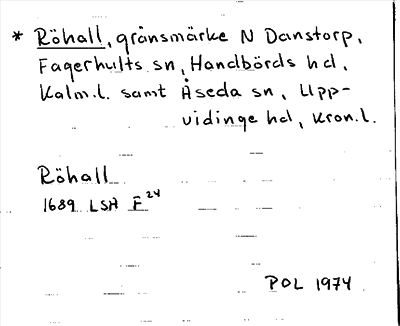 * Röhall, gränsmärke N Danstorp,
Fagerhults sn, Handbörds hd,
Kalm.l. samt Åseda sn, Upp-
vidinge hd, Kron.l.
Röhall
1689 LSH F 24
POL 1974